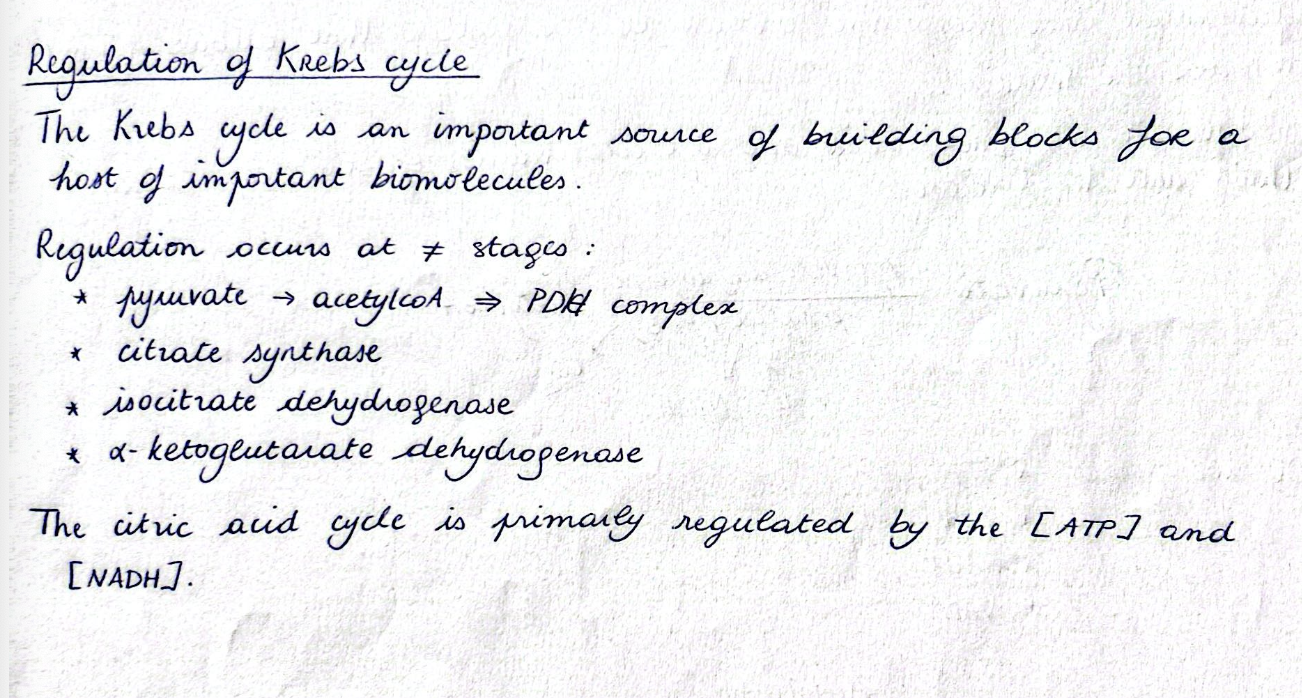 Regulation of Krebs cycle
The Krebs cycle is an important source of building blocks for a
host of important biomolecules.
Regulation occurs at ≠ stages :
* pyruvate → acetylcoA ⇒ PDH complex
* citrate synthase
* isocitrate dehydrogenase
* α-ketoglutarate dehydrogenase
The citric acid cycle is primarily regulated by the [ATP] and
[NADH].